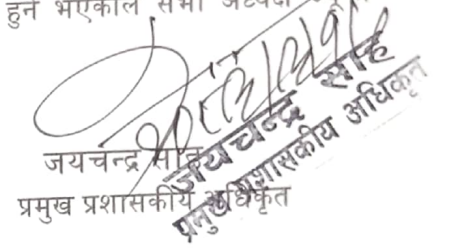 हुन भएकाले सभा
जयचन्द्र साह
प्रमुख प्रशासकीय अधिकृत
जयचन्द्र साह
प्रमुख प्रशासकीय अधिकृत